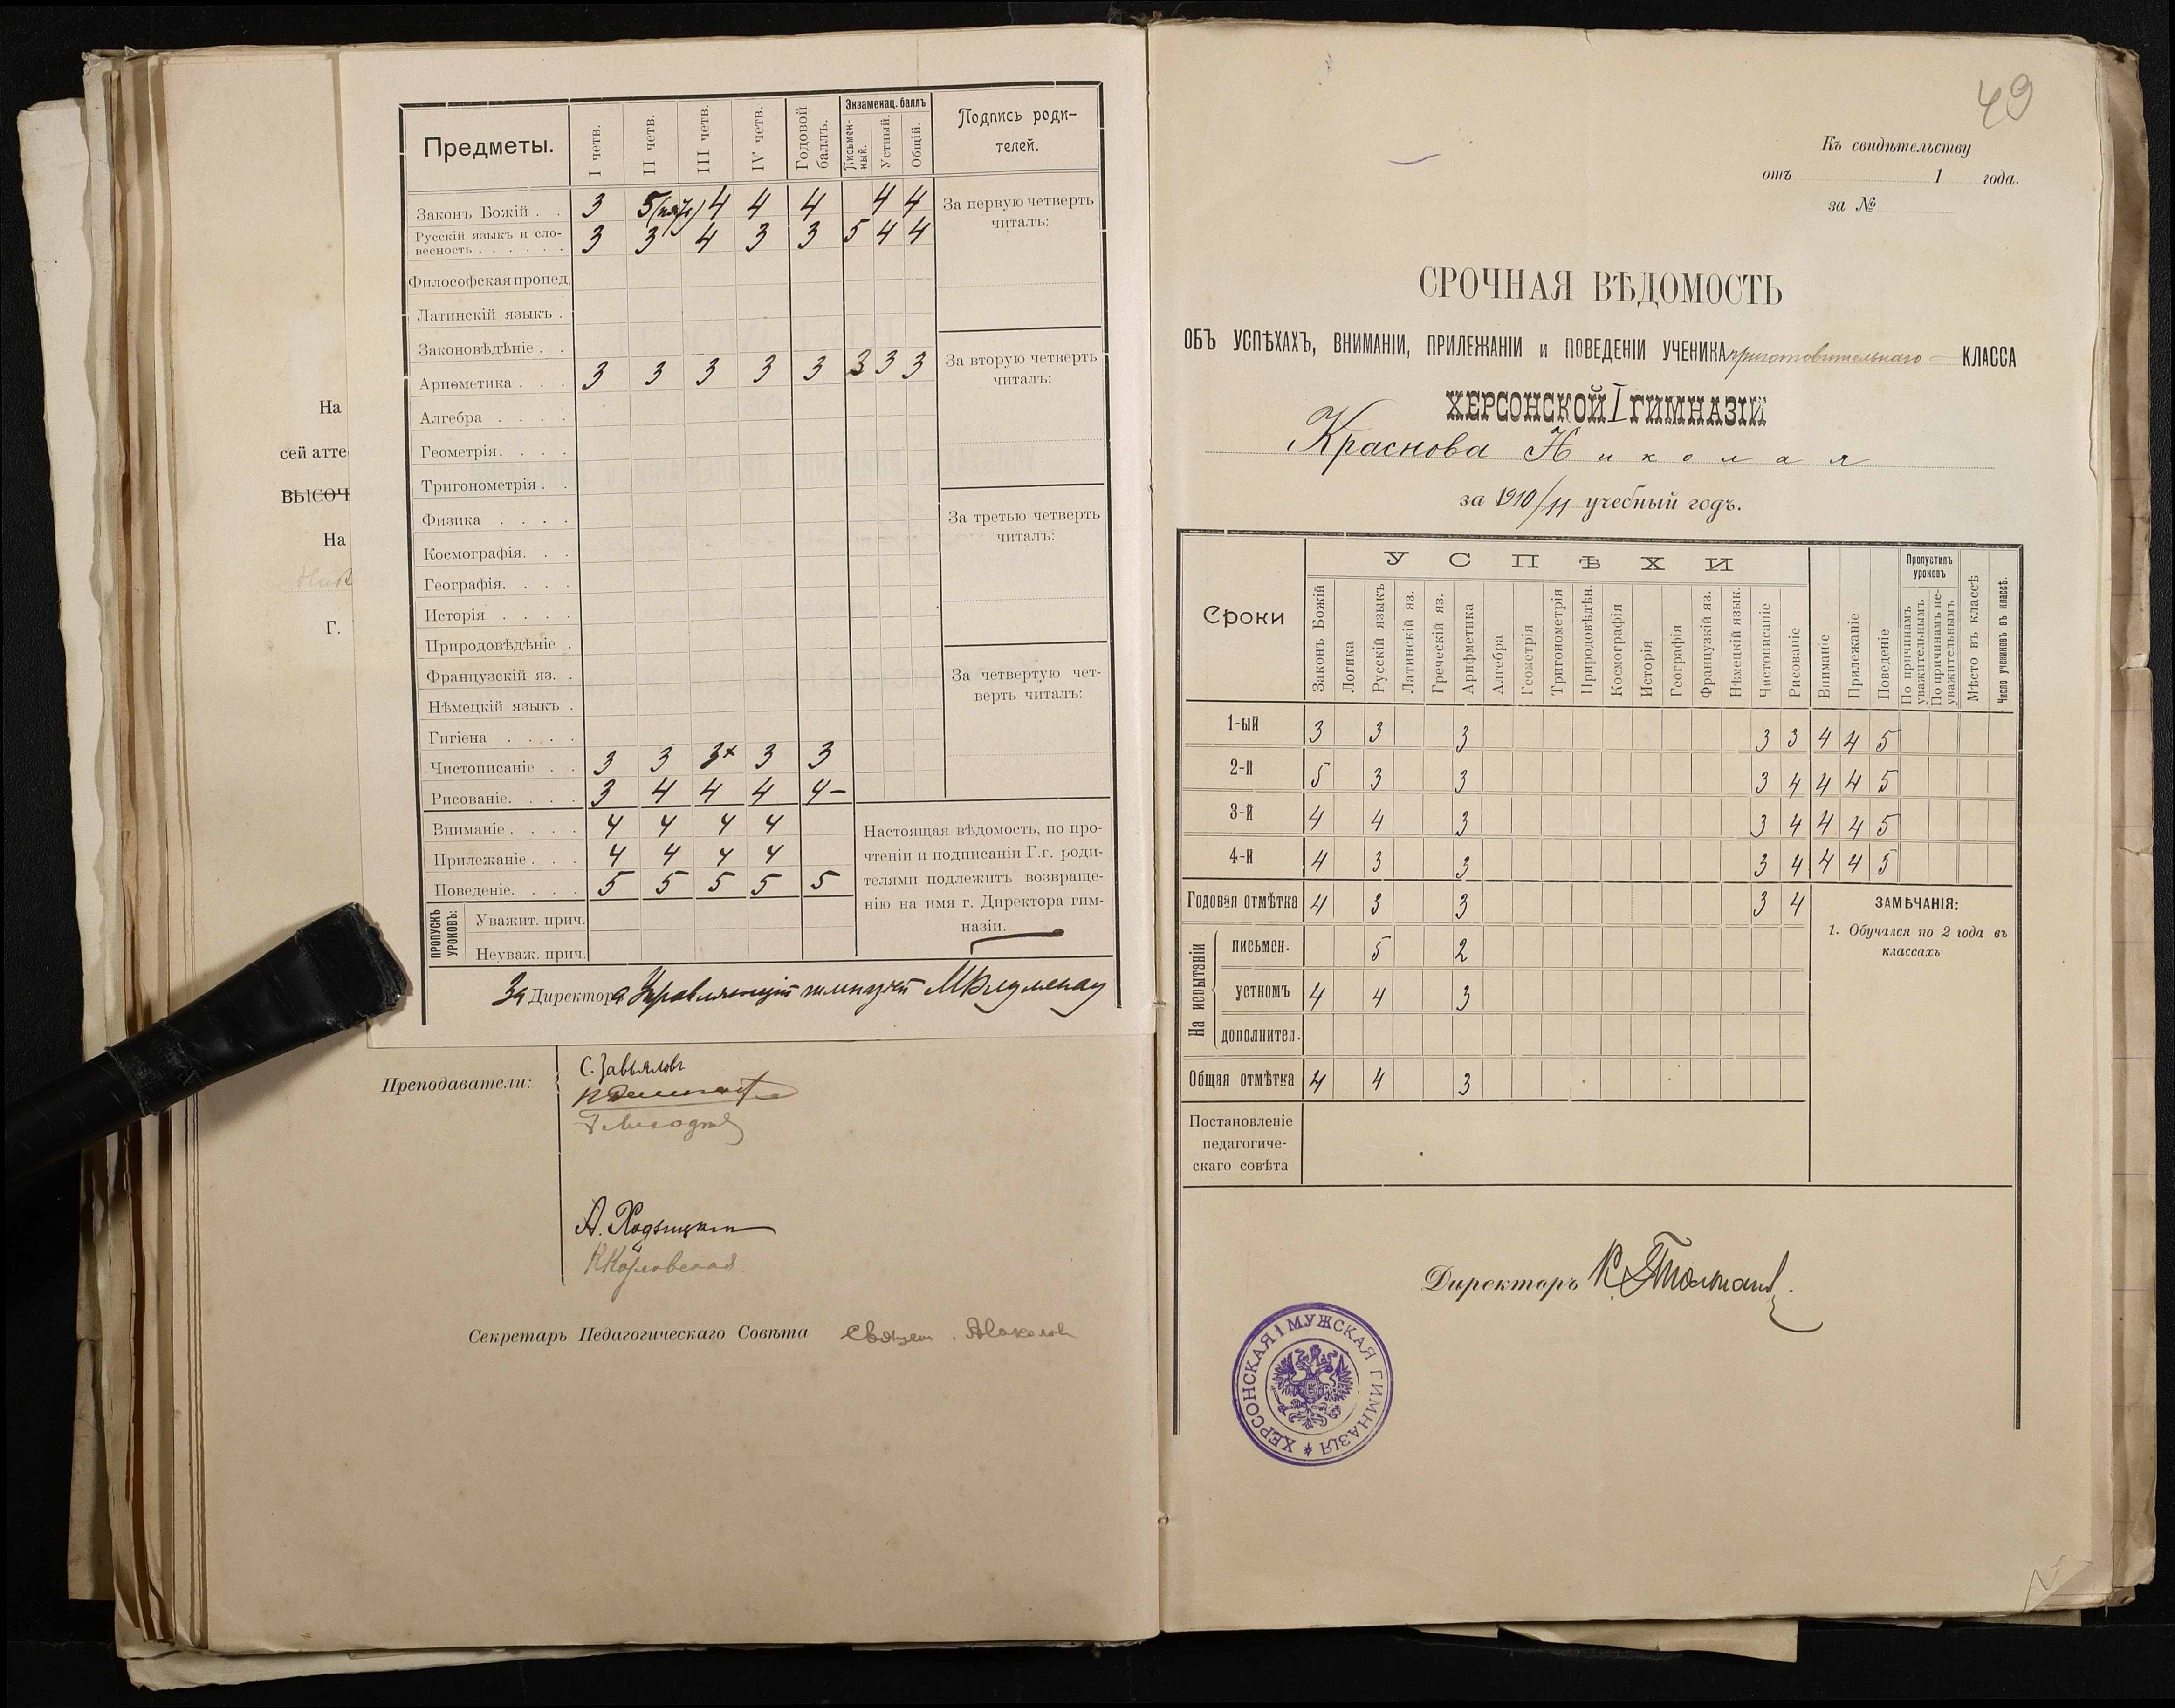 На
сей атте
ВЫСОЧ
На
Г.
Предметы.
I четв.
II четв.
III четв.
IV четв.
Годовой баллъ.
Экзаменац. баллъ
Письмен-ный.
Устный.
Общій.
Подпись роди-
телей.
Законъ Божій . . 3 5 4 4 4 4 4
Русскій языкъ и сло-
весность . . . . . . 3 3 4 3 3 5 4 4
Философская пропед.
Латинскій языкъ .
Законовѣдѣніе . .
Ариѳметика . . . 3 3 3 3 3 3 3 3
Алгебра . . . .
Геометрія. . . .
Тригонометрія . .
Физика . . . .
Космографія. . .
Географія. . . .
Исторія . . . .
Природовѣдѣніе .
Французскій яз. .
Нѣмецкій языкъ .
Гигіена . . . .
Чистописаніе . . 3 3 3+ 3 3
Рисованіе. . . . 3 4 4 4 4-
Вниманіе . . . . 4 4 4 4
Прилежаніе . . . 4 4 4 4
Поведеніе. . . . 5 5 5 5 5
ПРОПУСКЪ УРОКОВЪ:
Уважит. прич.
Неуваж. прич.
За первую четверть
читалъ:
За вторую четверть
читалъ:
За третью четверть
читалъ:
За четвертую чет-
верть читалъ:
Настоящая вѣдомость, по про-
чтеніи и подписаніи Г.г. роди-
телями подлежитъ возвраще-
нію на имя г. Директора гим-
назіи.
За Директора Управляющій гимназіей
Преподаватели:
С. Завьяловъ
Секретарь Педагогическаго Совѣта
49
Къ свидѣтельству
отъ 1 года.
за №
СРОЧНАЯ ВѢДОМОСТЬ
ОБЪ УСПѢХАХЪ, ВНИМАНІИ, ПРИЛЕЖАНІИ и ПОВЕДЕНІИ УЧЕНИКА приготовительнаго КЛАССА
ХЕРСОНСКОЙ I ГИМНАЗІИ
Краснова Николая
за 1910/11 учебный годъ.
Сроки
УСПѢХИ
Законъ Божій
Логика
Русскій языкъ
Латинскій яз.
Греческій яз.
Арифметика
Алгебра
Геометрія
Тригонометрія
Природовѣдѣн.
Космографія
Исторія
Географія
Французскій яз.
Нѣмецкій язык.
Чистописаніе
Рисованіе
Вниманіе
Прилежаніе
Поведеніе
Пропустилъ уроковъ
По причинамъ уважительнымъ
По причинамъ не-уважительнымъ
Мѣсто въ классѣ
Число учениковъ въ классѣ.
1-ый 3 3 3 3 3 4 4 5
2-й 5 3 3 3 4 4 4 5
3-й 4 4 3 3 4 4 4 5
4-й 4 3 3 3 4 4 4 5
Годовая отмѣтка 4 3 3 3 4
На испытаніи
письмен. 5 2
устномъ 4 4 3
дополнител.
Общая отмѣтка 4 4 3
Постановленіе
педагогиче-
скаго совѣта
ЗАМѢЧАНІЯ:
1. Обучался по 2 года въ
классахъ
Директоръ
ХЕРСОНСКАЯ I МУЖСКАЯ ГИМНАЗІЯ